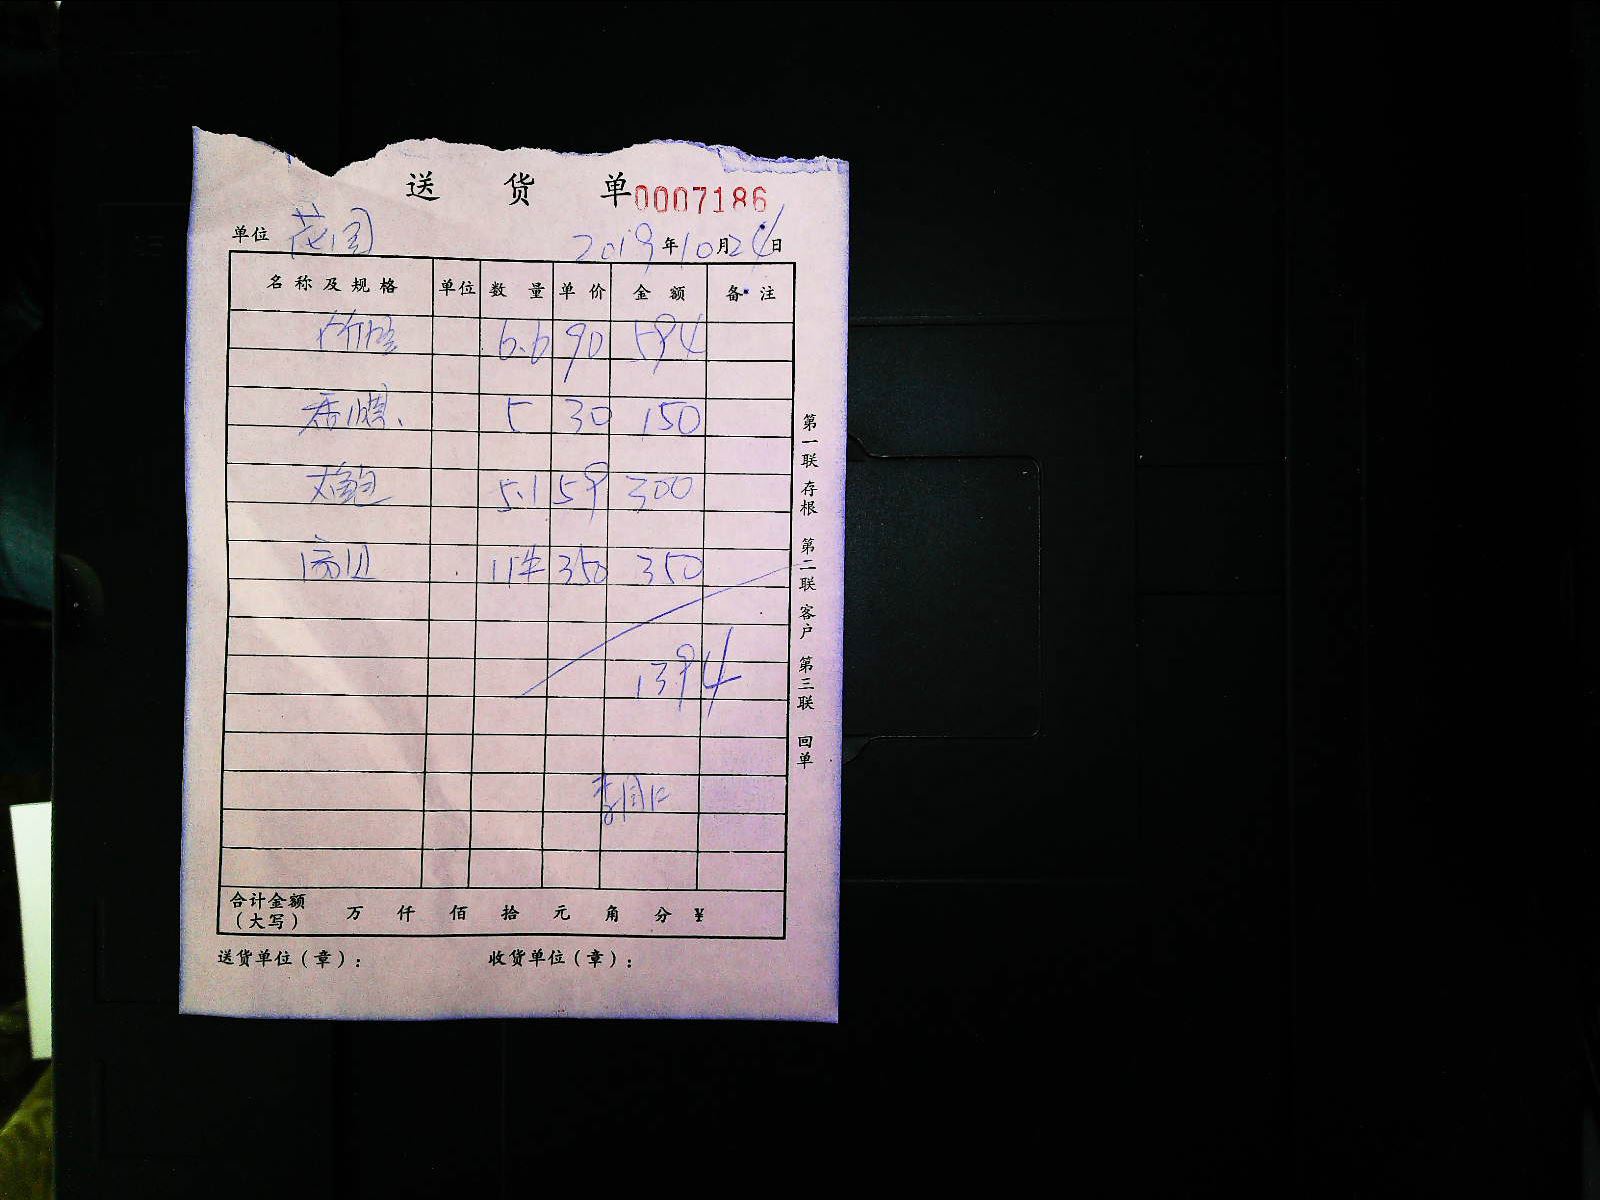 送 货 单 0007186
单位 花园 2019年10月24日
名称及规格 单位 数量 单价 金额 备注
竹节虾 6.6 90 594
香螺 5 30 150
大鲍 5.1 59 300
扇贝 1件 350 350
1394
合计金额（大写） 万 仟 佰 拾 元 角 分 ¥
送货单位（章）： 收货单位（章）：
第一联 存根 第二联 客户 第三联 回单